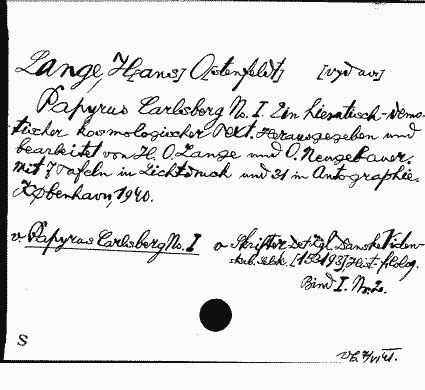 Lange, H[ans] O[stenfeldt] [vydav]
Papyrus Carlsberg No. I. Ein hieratisch-demo-
tischer kosmologischer Text. Herausgegeben und
bearbeitet von H. O. Lange und O. Neugebauer.
Mit 7 Tafeln in Lichtdruck und 31 in Autographie.
København, 1940.
v. Papyrus Carlsberg No. I o Skrifter Det Kgl. Danske Viden-
skab. Selsk. Hist-filolog.
Bind I. Nr. 2.
S